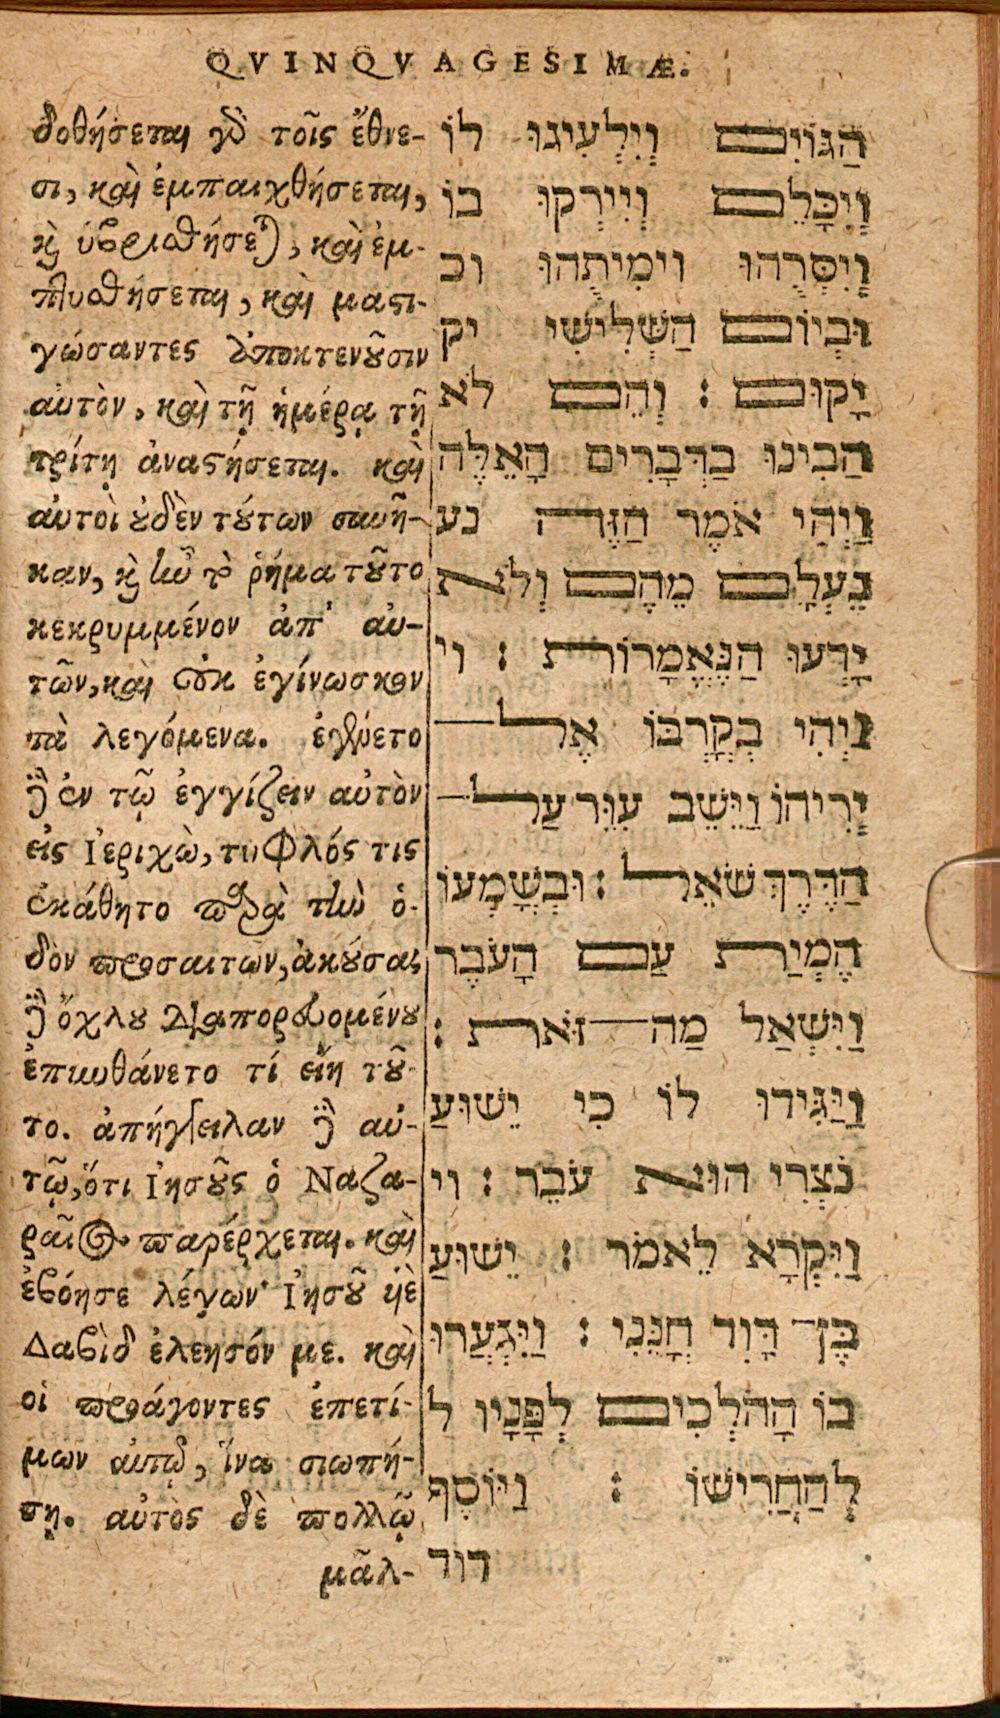 QVINQVAGESIMÆ.
δοθήσεται γὸ τοῖς ἔθνε-
σι, καὶ ἐμπαιχθήσεται,
κὶ ὑβρισθήσεται, καὶ ἐμ-
πτυσθήσεται, καὶ μαστι-
γώσαντες ἀποκτενοῦσιν
αὐτὸν, καὶ τῇ ἡμέρᾳ τῇ
τρίτῃ ἀναστήσεται. καὶ
αὐτοὶ οὐδὲν τούτων συνῆ-
καν, κὶ ἦν τὸ ῥῆμα τοῦτο
κεκρυμμένον ἀπ' αὐ-
τῶν, καὶ οὐκ ἐγίνωσκον
τὰ λεγόμενα. ἐγένετο
δὲ ἐν τῷ ἐγγίζειν αὐτὸν
εἰς Ἰεριχὼ, τυφλός τις
ἐκάθητο παρὰ τὴν ὁ-
δὸν προσαιτῶν, ἀκούσας
δὲ ὄχλου διαπορευομένου
ἐπυνθάνετο τί εἴη τοῦ-
το. ἀπήγγειλαν δὲ αὐ-
τῷ, ὅτι Ἰησοῦς ὁ Ναζω-
ραῖος παρέρχεται. καὶ
ἐβόησε λέγων· Ἰησοῦ υἱὲ
Δαβὶδ ἐλεησόν με. καὶ
οἱ προάγοντες ἐπετί-
μων αὐτῷ, ἵνα σιωπή-
σῃ. αὐτὸς δὲ πολλῷ
μᾶλ-
הַגּוֹיִם וְיִלְעִיגוּ לוֹ
וְיִכָּלֵם וְיִירְקוּ בוֹ
וְיִסְּרֻהוּ וימִיתֻהוּ וב
וּבְיוֹם הַשְּׁלִישִׁי יק
יָקוּם : וְהֵם לֹא
הַבִינוּ בַדְּבָרִים הָאֵלֶּה
וַיְהִי אֹמֶר הַזֶּה נע
נֶעְלָם מֵהֶם וְלֹא
יָדְעוּ הַנֶּאֱמָרוֹת : וי
וַיְהִי בְקָרְבּוֹ אֶל—
יְרִיהוֹ וַיֵּשֵׁב עִוֵּר עַל—
הַדֶּרֶךְ שֹׁאֵל : וּבְשָׁמְעוֹ
הֶמְיַת עַם הָעֹבֵר
וַיִּשְׁאַל מַה—זֹּאת :
וַיַּגִּידוּ לוֹ כִי יֵשׁוּעַ
נֹצְרִי הוּא עֹבֵר : וי
וַיִּקְרָא לֵאמֹר : יֵשׁוּעַ
בֶּן—דָּוִד חָנֵּנִי : וַיִּגְעֲרוּ
בוֹ הָהֹלְכִים לְפָנָיו ל
לְהַחֲרִישׁוֹ : וַיּוֹסֶף
דוד